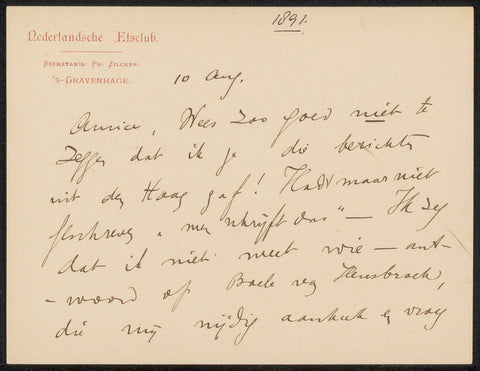 1891.
Nederlandsche Etsclub.
Secretaris: Ph. Zilcken.
's-Gravenhage.
10 Aug.
Amice, Wees zoo goed niet te
zeggen dat ik je die berichten
uit den Haag gaf! Hadt maar niet
geschreven „men schrijft ons" — Ik zeg
dat ik niet weet wie — ant-
-woord op Boele van Hensbroek,
die mij nijdig aankeek en vroeg